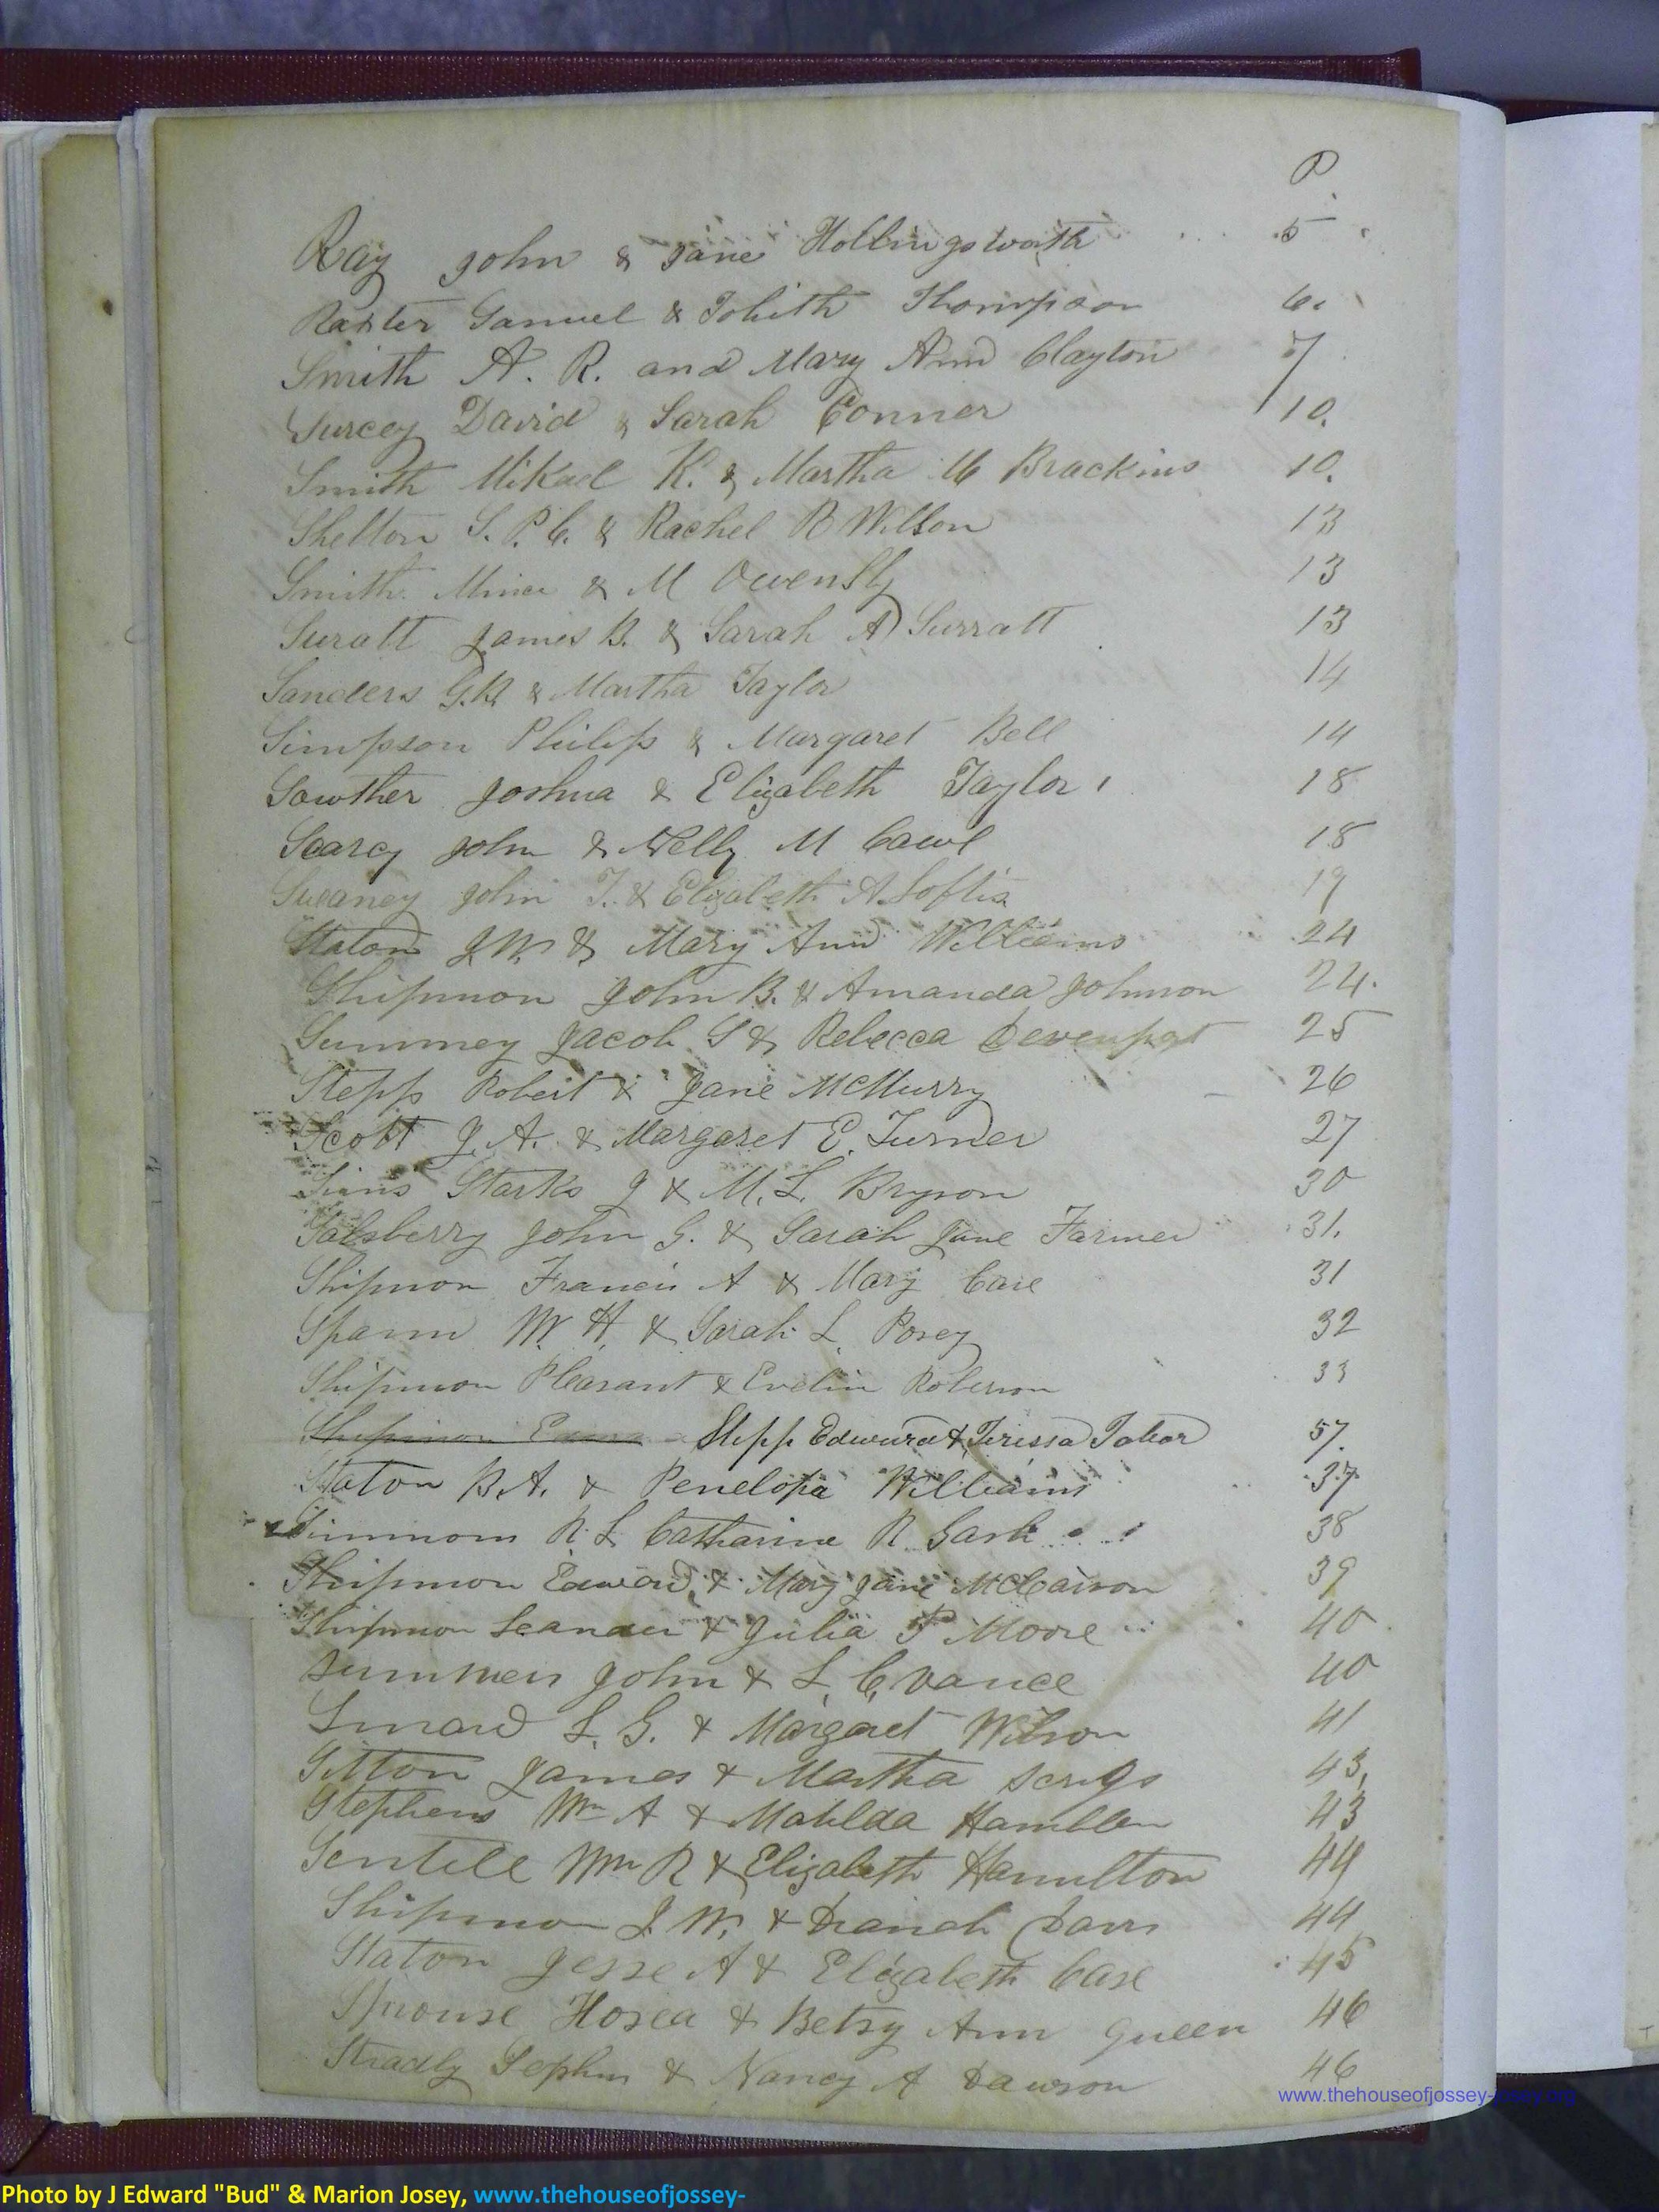 P
Ray John & Jane Hollingsworth 5
Raxter Samuel & Tobith Thompson 6.
Smith A. R. and Mary Ann Clayton 7
Surcey David & Sarah Conner 10.
Smith Mikael K. & Martha M Brackins 10.
Shelton S. P. C. & Rachel R Wilson 13
Smith & M Owensly 13
Suratt James B. & Sarah A Surratt 13
Sanders G.R. & Martha Taylor 14
Simpson Philip & Margaret Bell 14
Sowther Joshua & Elizabeth Taylor 18
Searcy John & Nelly M Cawl 18
Sweaney John T. & Elizabeth A Loftis 19
Staton J.W. & Mary Ann Williams 24
Shipmon John B. & Amanda Johnson 24.
Summey Jacob S & Rebecca Devenport 25
Stepp Robert & Jane McMurry 26
Scott J. A. & Margaret E. Turner 27
Sims Starks J & M. L. Bryson 30
Salsberry John G. & Sarah Jane Farmer 31.
Shipmon Francis A & Mary Case 31
Spann W. H. & Sarah L. Posey 32
Shipmon Pleasant & Evelin Roberson 33
Shipmon Stepp Edward & Terissa Tabor 57.
Staton B.A. & Penelopa Williams 37
Simmons R. L Catharine R. Gash 38
Shipmon Edward & Mary Jane McCarson 39
Shipmon Leander & Julia P Moore 40
Summers John & L. C. Vance 40
Sinard L. G. & Margaret Wilson 41
Sitton James & Martha Scrugs 43,
Stephens Wm A & Matilda Hamblen 43
Sentell Wm R & Elizabeth Hamilton 44
Shipmon J. W. & Davis 44
Staton Jesse A & Elizabeth Case 45
Sprouse Hosea & Betsy Ann Queen 46
Stradly & Nancy A Dawson 46
www.thehouseofjossey-josey.org
Photo by J Edward "Bud" & Marion Josey, www.thehouseofjossey-